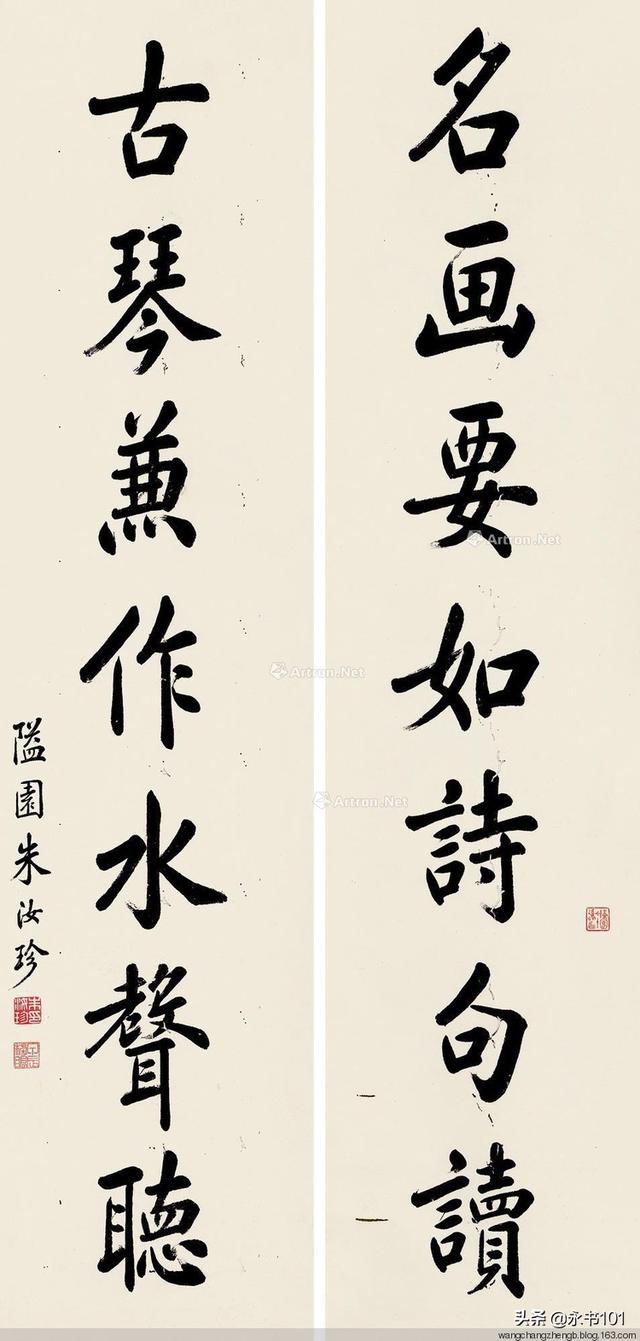 名画要如詩句讀
古琴兼作水聲聽
隘園朱汝珍
Artron.Net
Artron.Net
Artron.Net
头条 @永书101
wangchangzhengb.blog.163.com